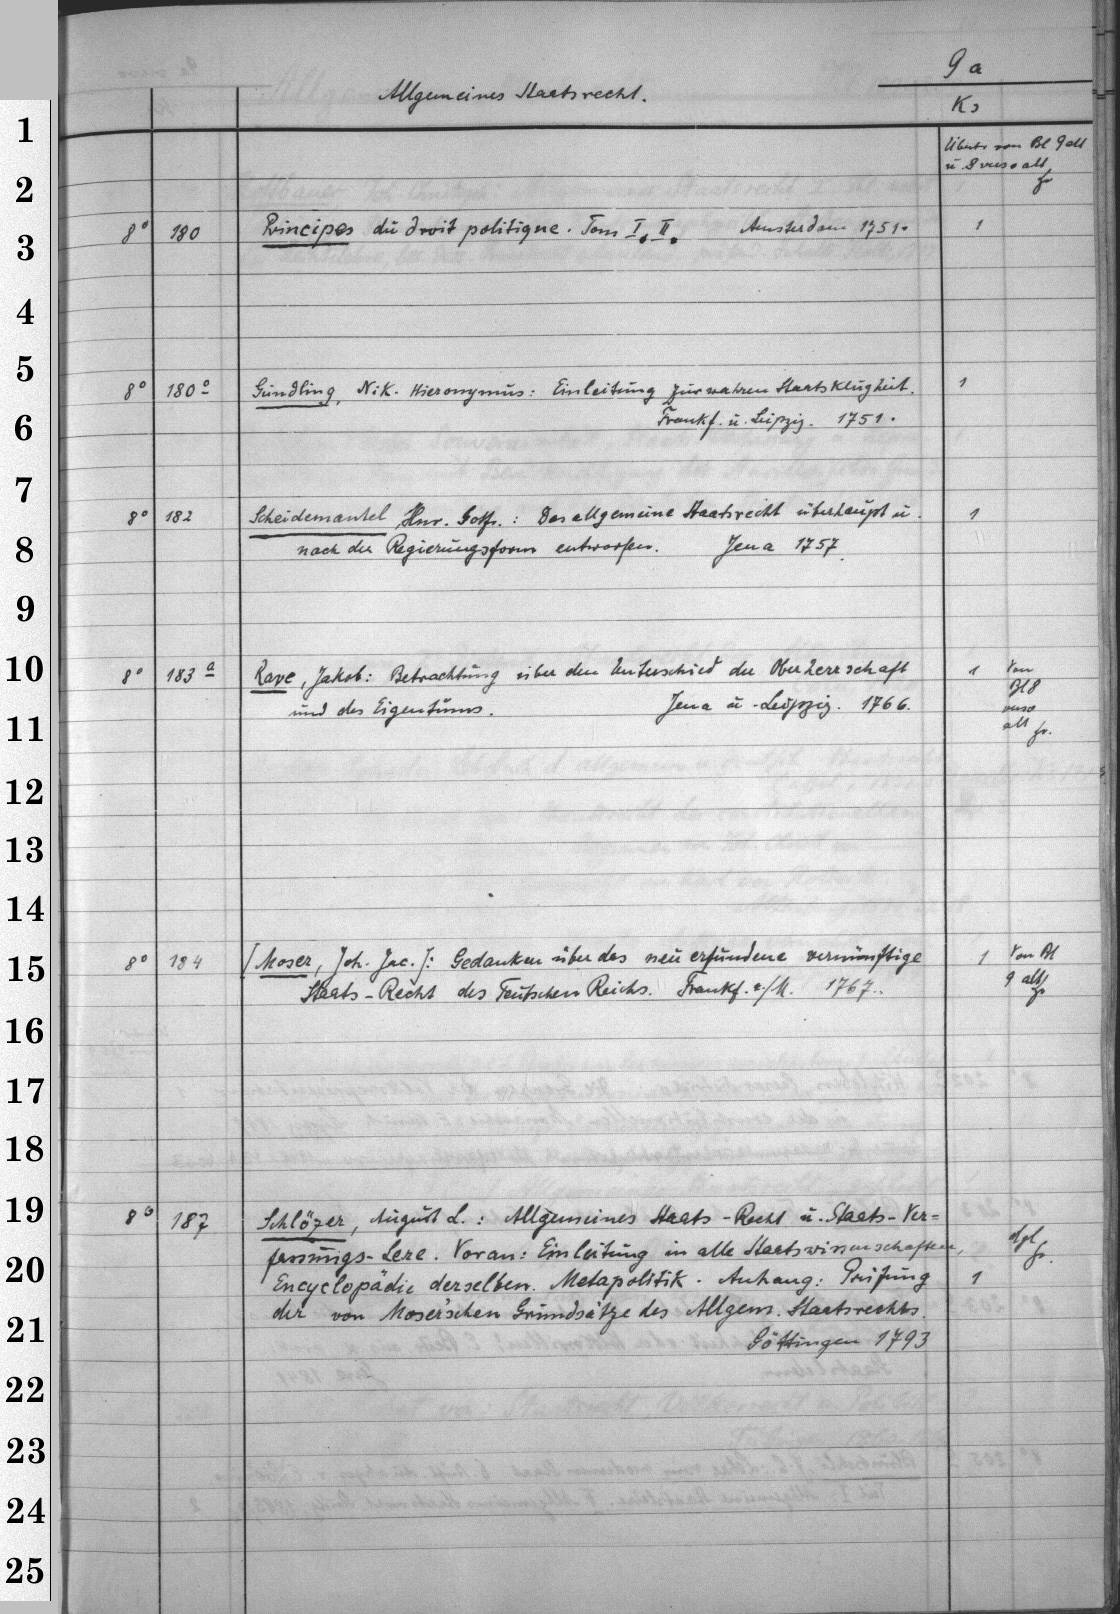 9a
Allgemeines Staatsrecht.
Ks
1
Übertr. von Bl 9 alt
2
u 8 verso alt
3
8° 180 Principes du droit politique. Tom I, II. Amsterdam 1751. 1
4
5
8° 180° Gundling, Nik. Hieronymus: Einleitung zur wahren Staatsklugheit. 1
6
Frankf. u. Leipzig. 1751.
7
8° 182 Scheidemantel, Hnr. Gotfr.: Das allgemeine Staatsrecht überhaupt u. 1
8
nach der Regierungsform entworfen. Jena 1757.
9
10
8° 183 a Rave, Jakob: Betrachtung über den Unterschied der Oberherrschaft 1 Von
Bl 8
und des Eigentums. Jena u. Leipzig. 1766. verso
11
alt
12
13
14
15
8° 184 [Moser, Joh. Jac.]: Gedanken über das neu erfundene vernünftige 1 Von Bl
Staats-Recht des Teutschen Reichs. Frankf. a/M. 1767. 9 alt
16
17
18
19
8° 187 Schlözer, August L.: Allgemeines Staats-Recht u. Staats-Ver=
fassungs-Lere. Voran: Einleitung in alle Staatswissenschaften, dgl
20
Encyclopädie derselben. Metapolitik. Anhang: Prüfung 1
der von Moser'schen Grundsätze des Allgem. Staatsrechts.
21
Göttingen 1793
22
23
24
25